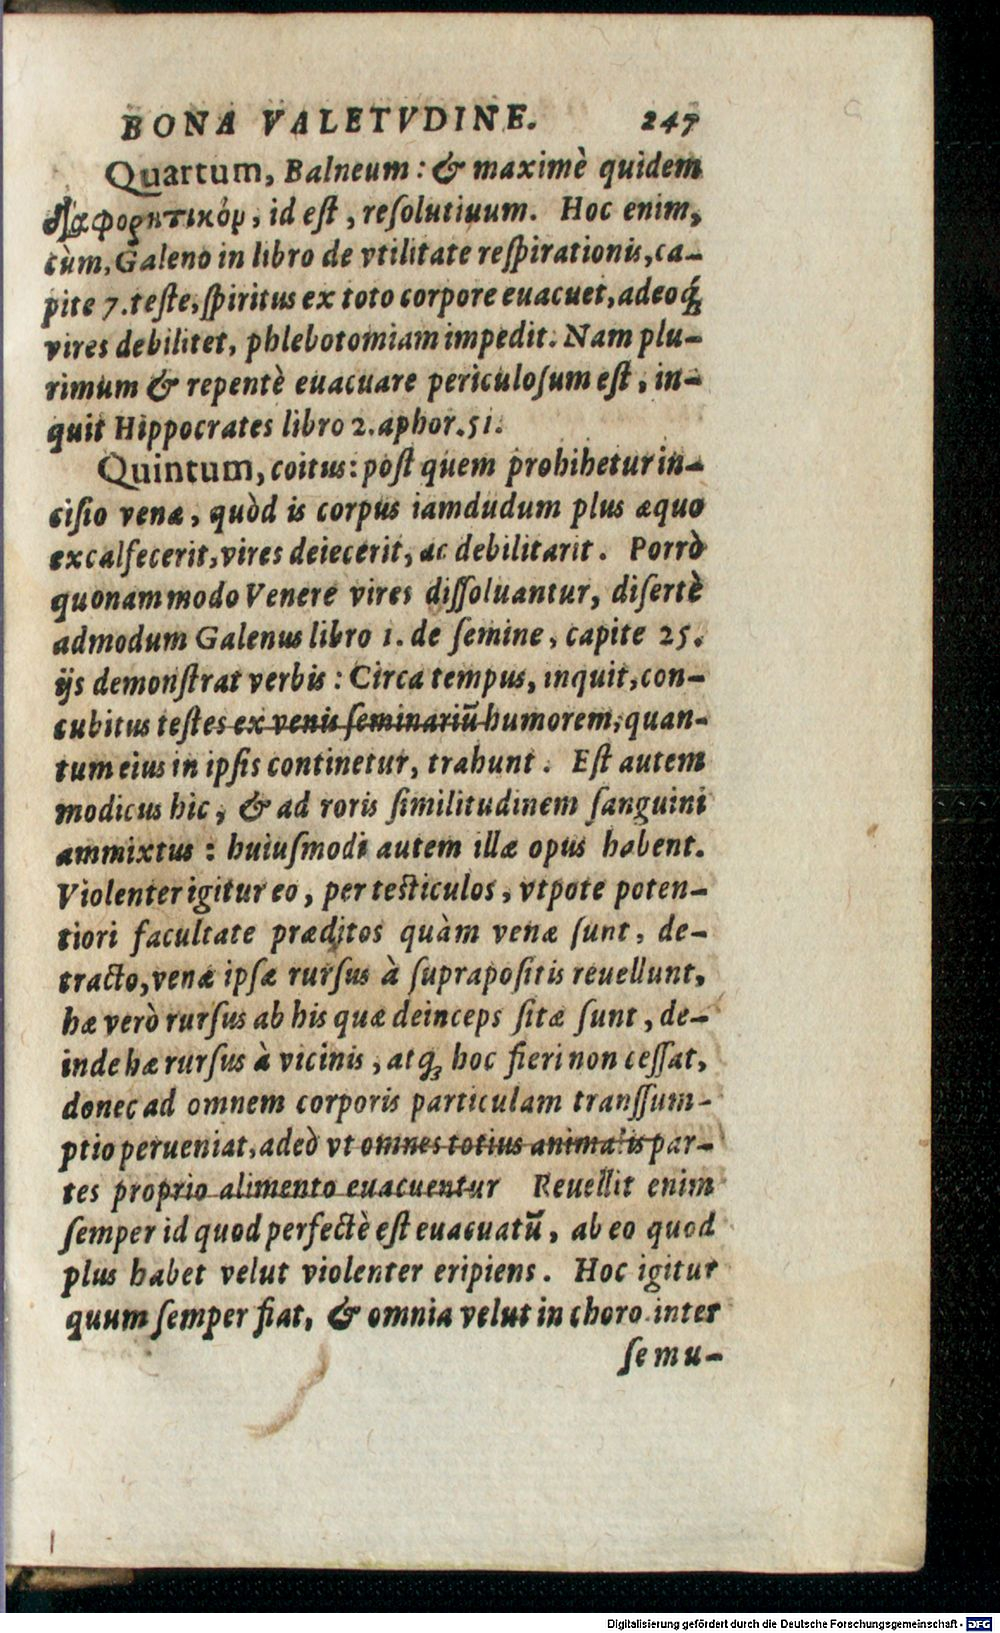 BONA VALETVDINE. 247
Quartum, Balneum: & maximè quidem
διαφορητικόν, id eſt, reſolutiuum. Hoc enim,
cùm, Galeno in libro de vtilitate reſpirationis, ca-
pite 7. teſte, ſpiritus ex toto corpore euacuet, adeoq́;
vires debilitet, phlebotomiam impedit. Nam plu-
rimum & repentè euacuare periculoſum eſt, in-
quit Hippocrates libro 2. aphor. 51.
Quintum, coitus: poſt quem prohibetur in-
ciſio venæ, quòd is corpus iamdudum plus æquo
excalfecerit, vires deiecerit, ac debilitarit. Porrò
quonammodo Venere vires diſſoluantur, diſertè
admodum Galenus libro 1. de ſemine, capite 25.
ijs demonſtrat verbis: Circa tempus, inquit, con-
cubitus teſtes ex venis ſeminariū humorem, quan-
tum eius in ipſis continetur, trahunt. Eſt autem
modicus hic, & ad roris ſimilitudinem ſanguini
ammixtus: huiuſmodi autem illæ opus habent.
Violenter igitur eo, per teſticulos, vtpote poten-
tiori facultate præditos quàm venæ ſunt, de-
tracto, venæ ipſæ rurſus à ſuprapoſitis reuellunt,
hæ verò rurſus ab his quæ deinceps ſitæ ſunt, de-
inde hæ rurſus à vicinis, atq; hoc fieri non ceſſat,
donec ad omnem corporis particulam tranſſum-
ptio perueniat, adeò vt omnes totius animalis par-
tes proprio alimento euacuentur Reuellit enim
ſemper id quod perfectè eſt euacuatū, ab eo quod
plus habet velut violenter eripiens. Hoc igitur
quum ſemper fiat, & omnia velut in choro inter
ſe mu-
Digitalisierung gefördert durch die Deutsche Forschungsgemeinschaft - DFG